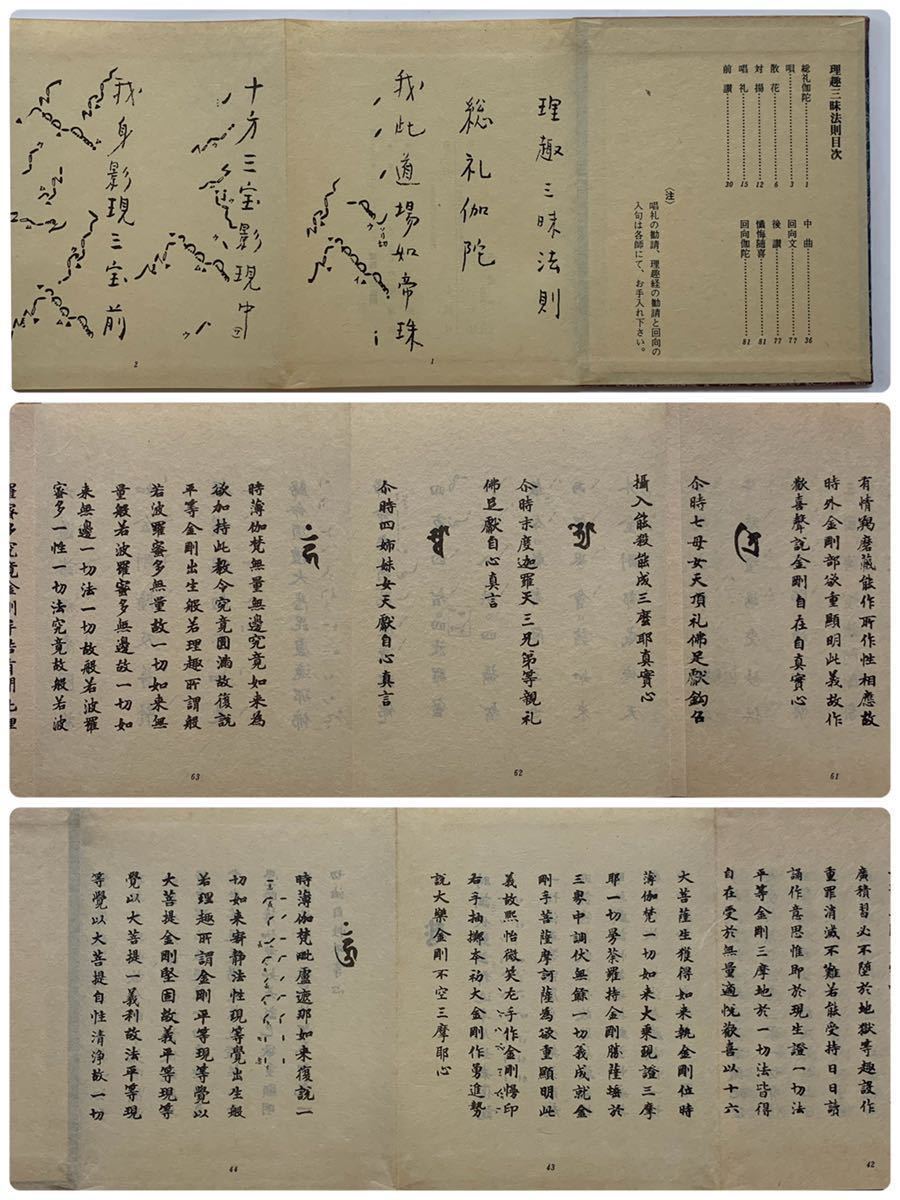 理趣三昧法則目次
総礼伽陀………1
唄………3
散花………6
対揚………12
唱礼………15
前讃………30
中曲………36
回向文………77
後讃………77
懺悔随喜………81
回向伽陀………81
〈注〉
唱礼の勧請、理趣経の勧請と回向の
入句は各師にて、お手入れ下さい。
理趣三昧法則
総礼伽陀
我此道場如帝珠
1
十方三宝影現中
我身影現三宝前
2
有情羯磨藏能作所作性相應故
時外金剛部欲重顯明此義故作
歡喜聲説金剛自在自真實心
61
尒時七母女天頂礼佛足獻鈎召
攝入能殺能成三麼耶真實心
尒時末度迦羅天三兄弟等親礼
佛足獻自心真言
尒時四姉妹女天獻自心真言
62
時薄伽梵無量無邊究竟如来為
欲加持此教令究竟圓満故復説
平等金剛出生般若理趣所謂般
若波羅蜜多無量故一切如来無
量般若波羅蜜多無邊故一切如
来無邊一切法一切故般若波羅
蜜多一性一切法究竟故般若波
63
羅蜜多究竟金剛手若有聞此理
廣積習必不墮於地獄等趣設作
重罪消滅不難若能受持日日讀
誦作意思惟即於現生證一切法
平等金剛三摩地於一切法皆得
自在受於無量適悦歡喜以十六
42
大菩薩生獲得如来執金剛位時
薄伽梵一切如来大乗現證三摩
耶一切曼荼羅持金剛勝薩埵於
三界中調伏無餘一切義成就金
剛手菩薩摩訶薩為欲重顯明此
義故熙怡微笑左手作金剛慢印
右手抽擲本初大金剛作勇進勢
説大樂金剛不空三摩耶心
43
時薄伽梵毗盧遮那如来復説一
切如来寂静法性現等覺出生般
若理趣所謂金剛平等現等覺以
大菩提金剛堅固故義平等現等
覺以大菩提一義利故法平等現
等覺以大菩提自性清浄故一切
44